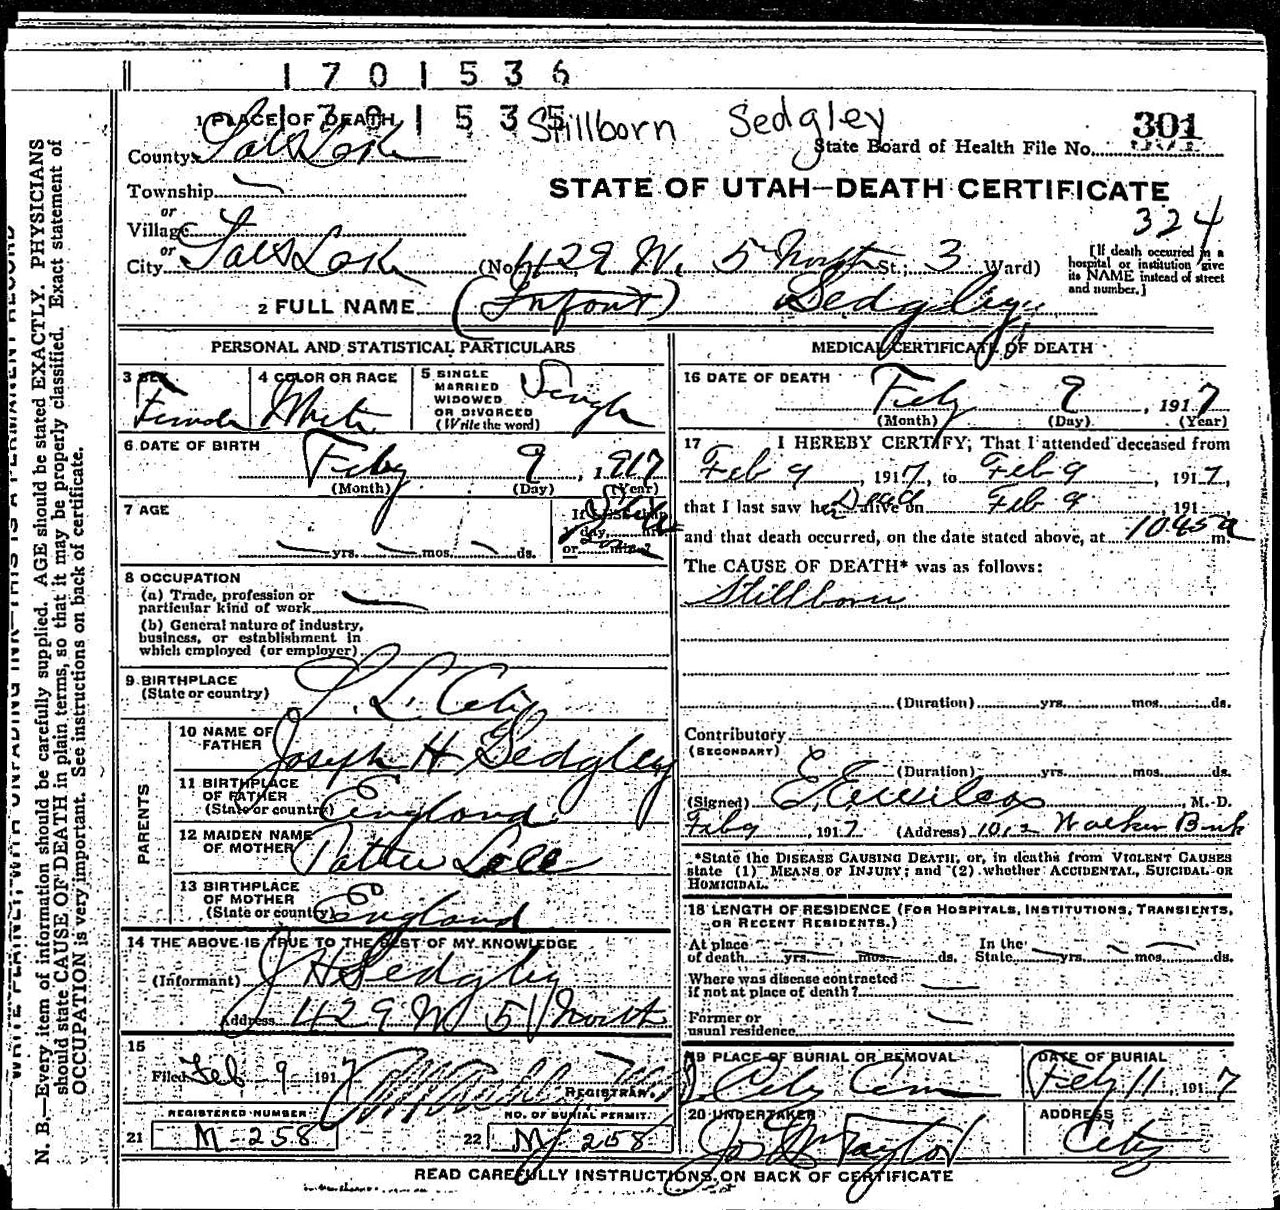 1701536
1701535
Stillborn Sedgley
301
1 PLACE OF DEATH
State Board of Health File No.
County Salt Lake
STATE OF UTAH—DEATH CERTIFICATE
Township
or
324
Village
or
City Salt Lake (No. 429 W. 5 North St.; 3 Ward)
[If death occurred in a hospital or institution give its NAME instead of street and number.]
2 FULL NAME (Infant) Sedgley
PERSONAL AND STATISTICAL PARTICULARS
3 SEX Female
4 COLOR OR RACE White
5 SINGLE MARRIED WIDOWED OR DIVORCED (Write the word) Single
6 DATE OF BIRTH Feby 9, 1917
(Month) (Day) (Year)
7 AGE
yrs. mos. ds.
If LESS than
1 day, hrs.
or min.?
8 OCCUPATION
(a) Trade, profession or
particular kind of work
(b) General nature of industry,
business, or establishment in
which employed (or employer)
9 BIRTHPLACE
(State or country) S. L. City
PARENTS
10 NAME OF FATHER Joseph H Sedgley
11 BIRTHPLACE OF FATHER
(State or country) England
12 MAIDEN NAME OF MOTHER
13 BIRTHPLACE OF MOTHER
(State or country) England
14 THE ABOVE IS TRUE TO THE BEST OF MY KNOWLEDGE
(Informant) J H Sedgley
Address 429 W 5 North
15
Filed Feb 9 1917
REGISTRAR.
REGISTERED NUMBER
21 M-258
NO. OF BURIAL PERMIT.
22 M-258
MEDICAL CERTIFICATE OF DEATH
16 DATE OF DEATH Feby 9, 1917
(Month) (Day) (Year)
17 I HEREBY CERTIFY, That I attended deceased from
Feb 9, 1917, to Feb 9, 1917,
that I last saw her Dead alive on Feb 9, 191
and that death occurred, on the date stated above, at 1045 a m.
The CAUSE OF DEATH* was as follows:
Stillborn
(Duration) yrs. mos. ds.
Contributory
(SECONDARY)
(Duration) yrs. mos. ds.
(Signed) M. D.
Feb 9, 1917 (Address) 1012 Walker Bank
*State the DISEASE CAUSING DEATH, or, in deaths from VIOLENT CAUSES
state (1) MEANS OF INJURY; and (2) whether ACCIDENTAL, SUICIDAL OR
HOMICIDAL.
18 LENGTH OF RESIDENCE (FOR HOSPITALS, INSTITUTIONS, TRANSIENTS,
OR RECENT RESIDENTS.)
At place of death yrs. mos. ds. In the State yrs. mos. ds.
Where was disease contracted
if not at place of death?
Former or
usual residence
19 PLACE OF BURIAL OR REMOVAL City Cem
DATE OF BURIAL Feby 11 1917
20 UNDERTAKER Jos Wm Taylor
ADDRESS City
READ CAREFULLY INSTRUCTIONS ON BACK OF CERTIFICATE
WRITE PLAINLY, WITH UNFADING INK—THIS IS A PERMANENT RECORD
N. B.—Every item of information should be carefully supplied. AGE should be stated EXACTLY. PHYSICIANS
should state CAUSE OF DEATH in plain terms, so that it may be properly classified. Exact statement of
OCCUPATION is very important. See instructions on back of certificate.